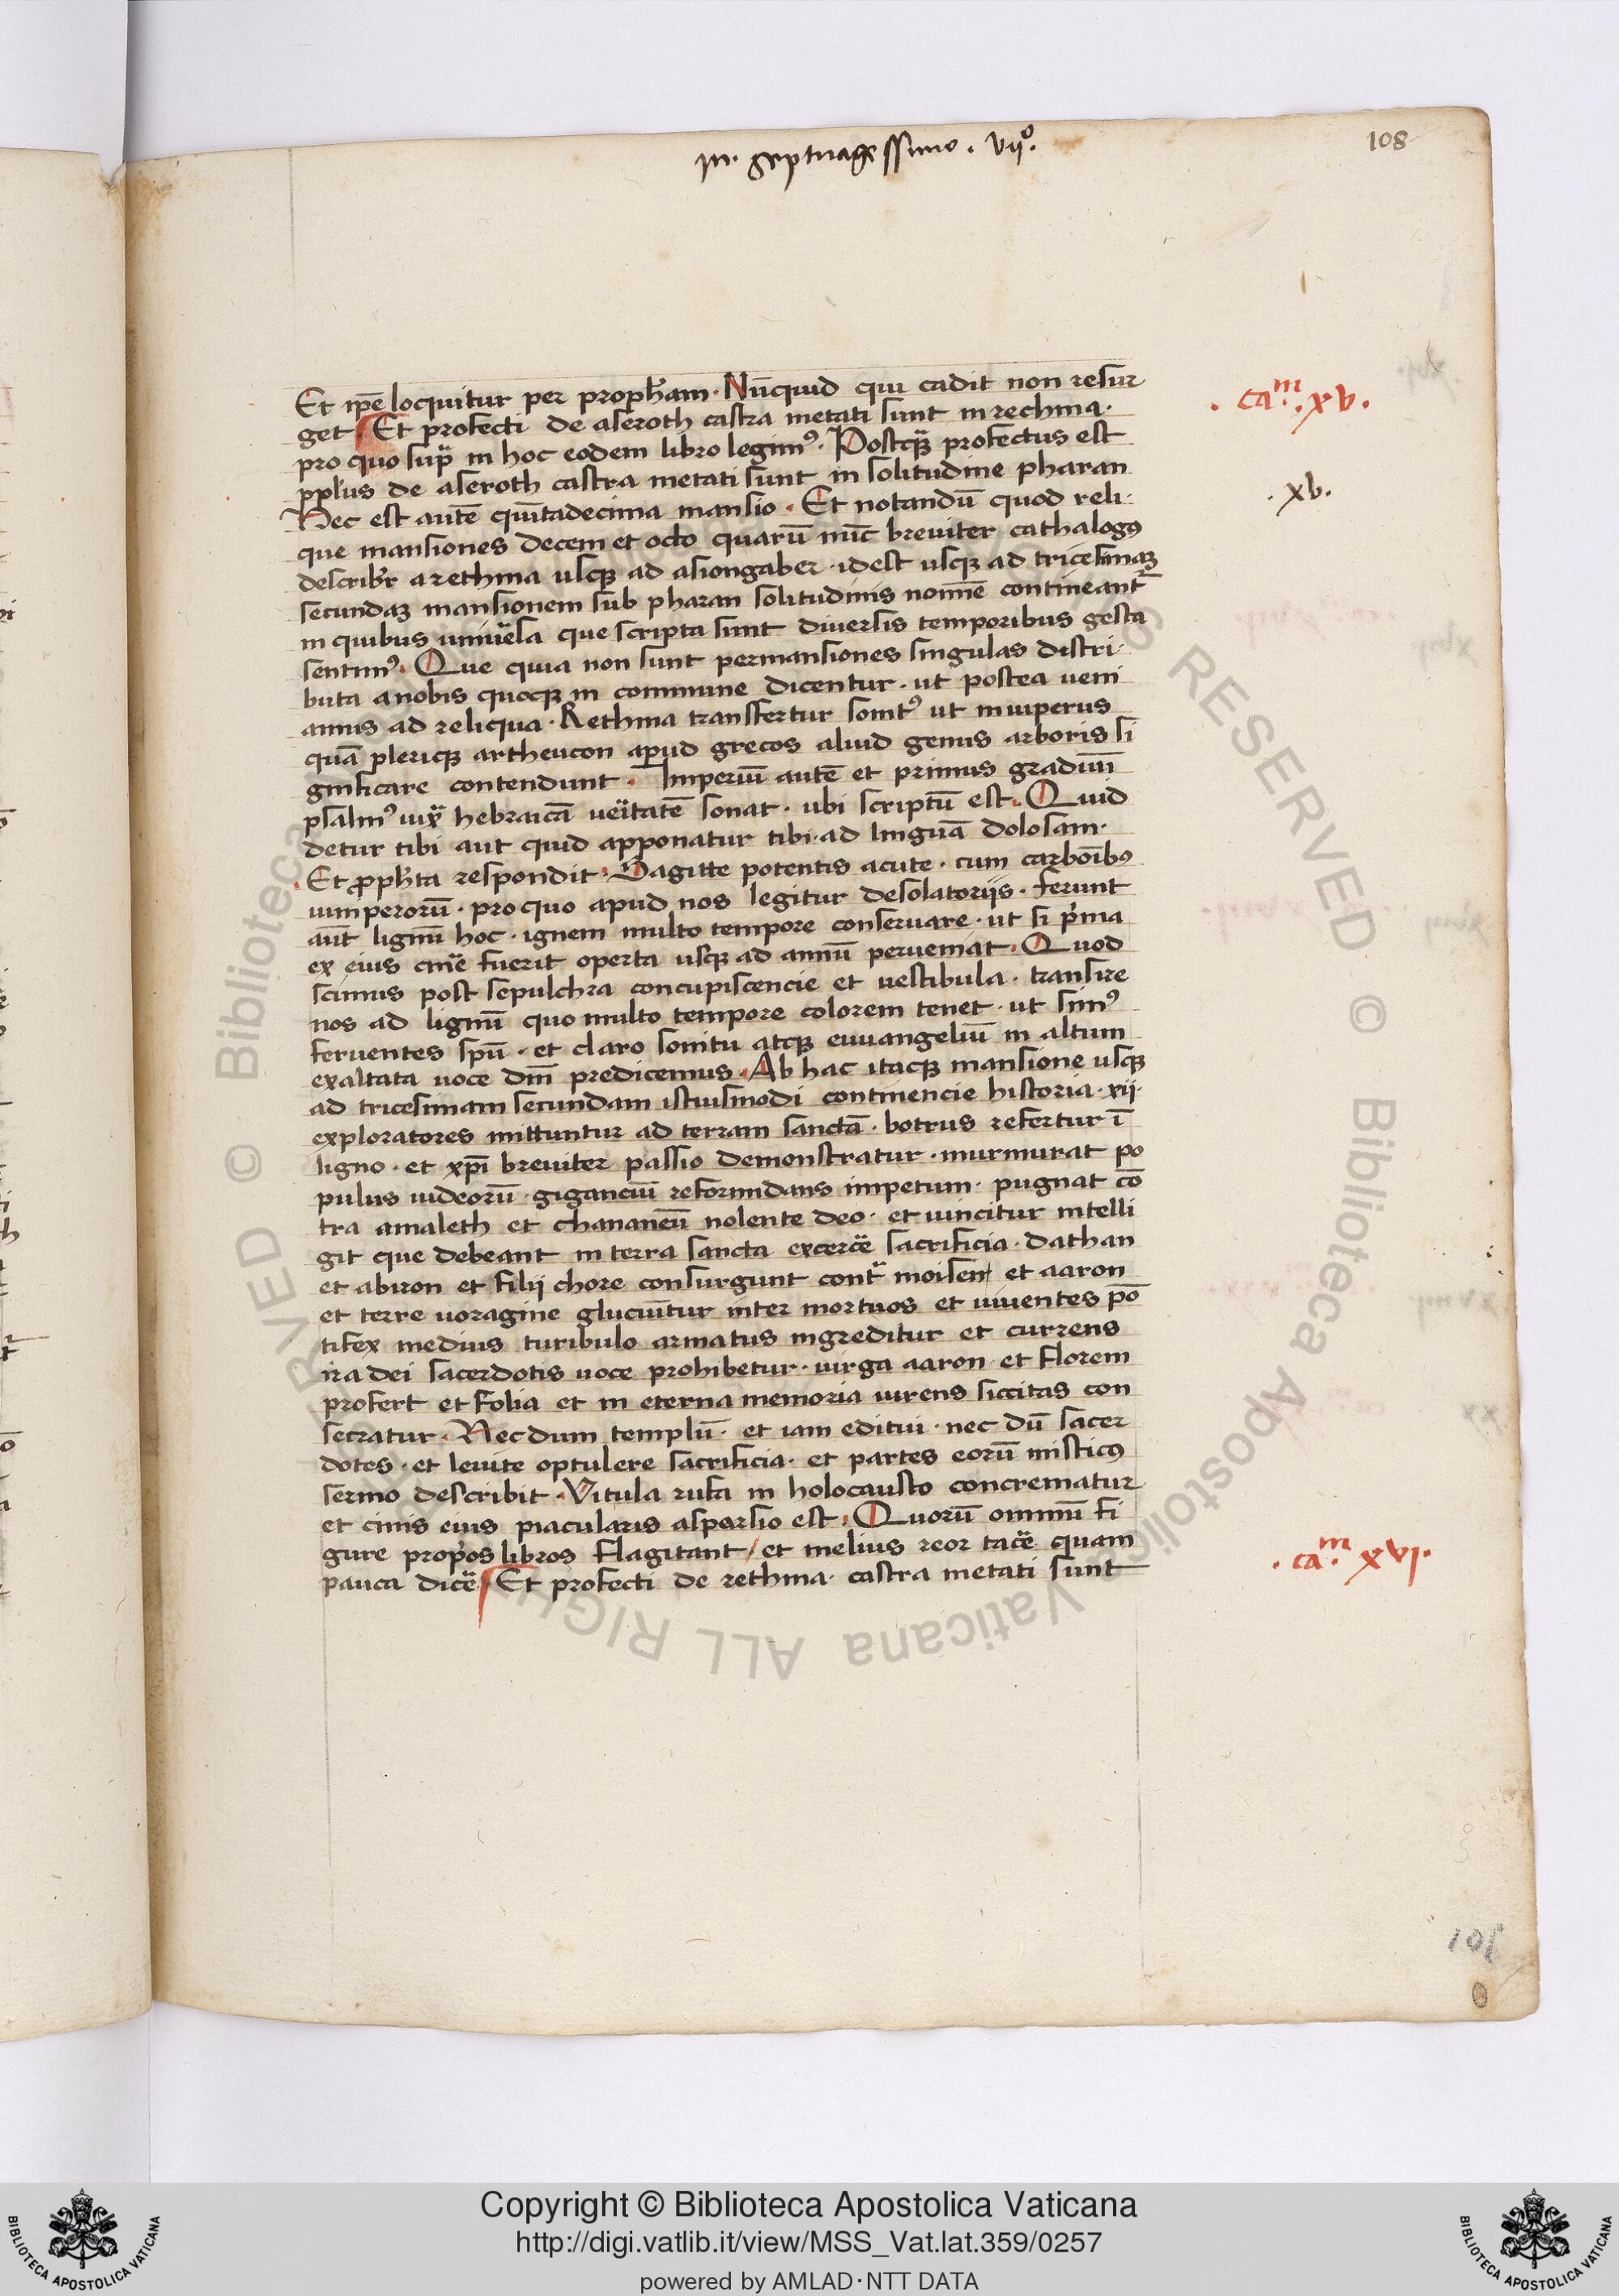 in. septuagessimo. vijº.
108
Et ip̄e loquitur per proph̄am. Nūquid qui cadit non resur
get. Et profecti de aseroth castra metati sunt in rechma.
. ca.m .xv.
pro quo sup̄ in hoc eodem libro legim⁹. Postq̄ꝫ profectus est
pp̄lus de aseroth castra metati sunt in solitudine pharan
. xv.
Hec est autē quītadecima mansio. Et notandū quod reli
que mansiones decem et octo quarū nūc breviter cathalogꝰ
describr̄ a rethma usqꝫ ad asiongaber. idest usqꝫ ad tricesimaꝫ
secundaꝫ mansionem sub pharan solitudinis nomīe contineant᷑
in quibus univs̄a que scripta sunt diversis temporibus gesta
sentim⁹. Que quia non sunt permansiones singulas distri
buta a nobis quoqꝫ in commune dicentur. ut postea veni
amus ad reliqua. Rethma transfertur sonit⁹ ut iuniperus
quā pleriqꝫ artheucon apud grecos aliud genus arboris si
gnificare contendunt. Imperiū autē et primus graduū
psalm⁹ iux̄ hebraicā ve͂itatē sonat. ubi scriptū est. Quid
detur tibi aut quid apponatur tibi. ad linguā dolosam.
Et p̄ph̄ta respondit. Sagitte potentis acute. cum carboībꝰ
iuniperorū. pro quo apud nos legitur desolatoriis. ferunt
aūt lignū hoc. ignem multo tempore conservare. ut si p̄ma
ex eius cine͂ fuerit operta usqꝫ ad annū perveniat. Quod
scimus post sepulchra concupiscencie et vestibula. transire
nos ad lignū quo multo tempore colorem tenet. ut sim⁹
ferventes spū. et claro sonitu atqꝫ euuangeliū in altum
exaltata voce dm̄ predicemus. Ab hac itaqꝫ mansione usqꝫ
ad tricesimam secundam istiusmodi continencie historia. xii.
exploratores mittuntur ad terram sanctā. botrus refertur ī
ligno. et xp̄i breviter passio demonstratur. murmurat po
pulus iudeorū. giganciū reformidans impetum. pugnat cō
tra amaleth et chananeū nolente deo. et vincitur intelli
git que debeant in terra sancta exerce͂ sacrificia. dathan
et abiron et filii chore consurgunt cont͂ moisen et aaron
et terre voragine gluciūtur inter mortuos et viventes pō
tifex medius turibulo armatus ingreditur et currens
ira dei sacerdotis voce prohibetur. virga aaron et florem
profert et folia et in eterna memoria virens siccitas con
secratur. Nec dum templū. et iam editui. nec dū sacer
dotes. et levite optulere sacrificia. et partes eorū misticꝰ
sermo describit. Vitula rufa in holocausto concrematur
et cinis eius piacularis aspersio est. Quorū omniū fi
gure propos libros flagitant / et melius reor tace͂ quam
pauca dice͂ Et profecti de rethma. castra metati sunt
. ca.m xvi.
101
Copyright © Biblioteca Apostolica Vaticana
http://digi.vatlib.it/view/MSS_Vat.lat.359/0257
powered by AMLAD·NTT DATA
BIBLIOTECA APOSTOLICA VATICANA
BIBLIOTECA APOSTOLICA VATICANA